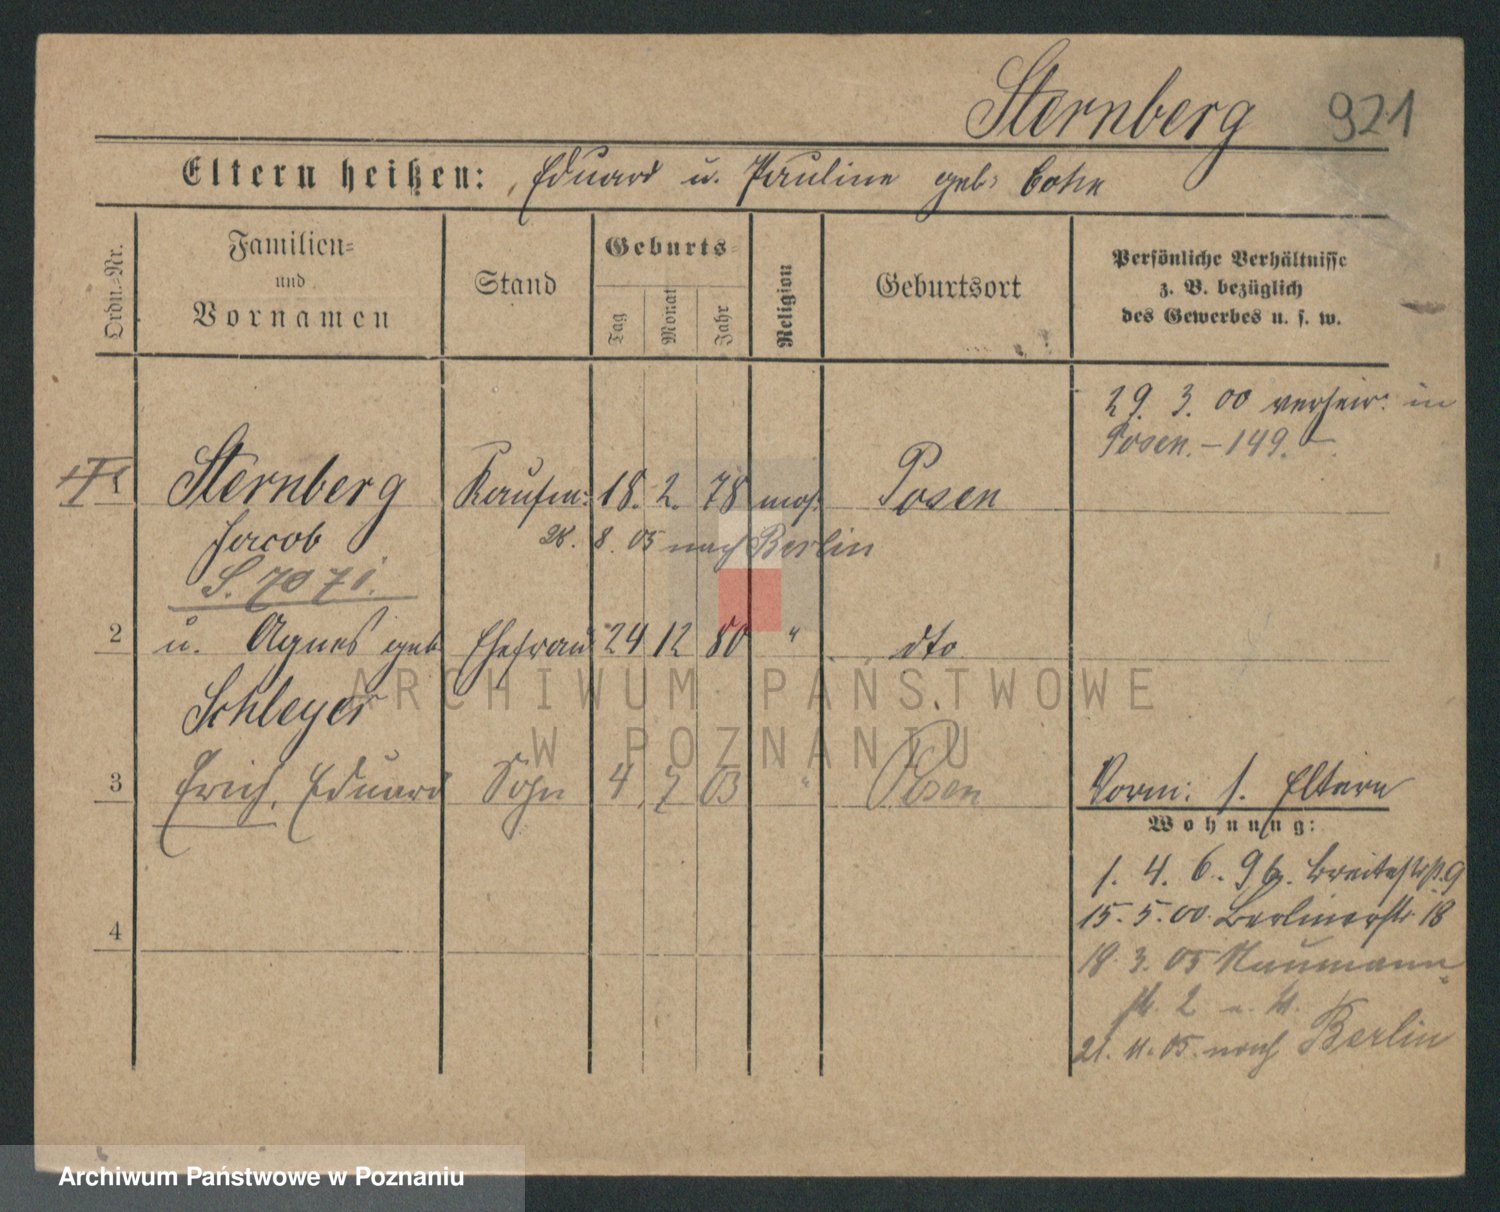 Sternberg 921
Eltern heißen: Eduard u. Pauline geb:
Ordn.-Nr.
Familien- und Vornamen
Stand
Geburts-
Tag
Monat
Jahr
Religion
Geburtsort
Persönliche Verhältnisse
z. B. bezüglich
des Gewerbes u. s. w.
29. 3. 00 verheir: in
Posen. – 149. –
1 Sternberg Kaufm: 18. 2. 78 mos. Posen
Jacob 28. 8. 05 nach Berlin
S. 7071.
2 u. Agnes geb Ehefrau 24 12 80 " dto
Schleyer
ARCHIWUM PAŃSTWOWE
W POZNANIU
3 Erich, Eduard Sohn 4 7 03 " Posen
Vorm: s. Eltern
Wohnung:
1. 4. 6. 96. Breitestr. 9
15. 5. 00. Berlinerstr 18
4
18. 3. 05 Naumann-
str. 2
21. 11. 05. nach Berlin
Archiwum Państwowe w Poznaniu